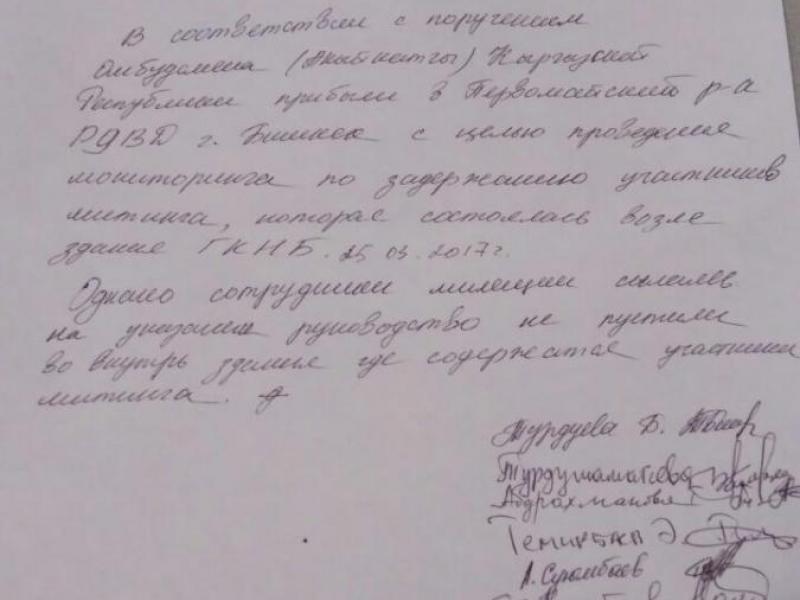 В соответствии с поручением
Омбудсмена (Акыйкатчы) Кыргызской
Республики прибыли в Первомайский р-а
РУВД г. Бишкек с целью проведение
мониторинга по задержанию участников
митинга, которая состоялась возле
здание ГКНБ. 25 03. 2017г.
Однако сотрудники милиции ссылаясь
на указание руководство не пустили
во внутрь здания где содержатся участники
митинга.
Турдуева Б.
Турдушаматова
Абдрахманова
Темирбек Э.
А. Суранбаев